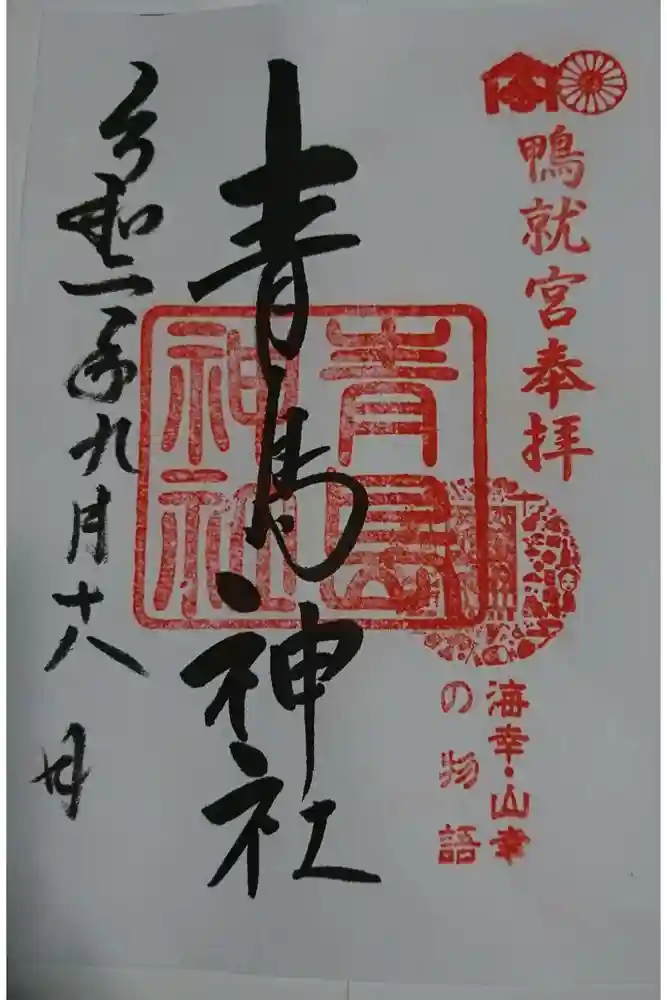 鴨就宮奉拝
海幸・山幸
の物語
青島神社
青島
神社
令和一年九月十八日